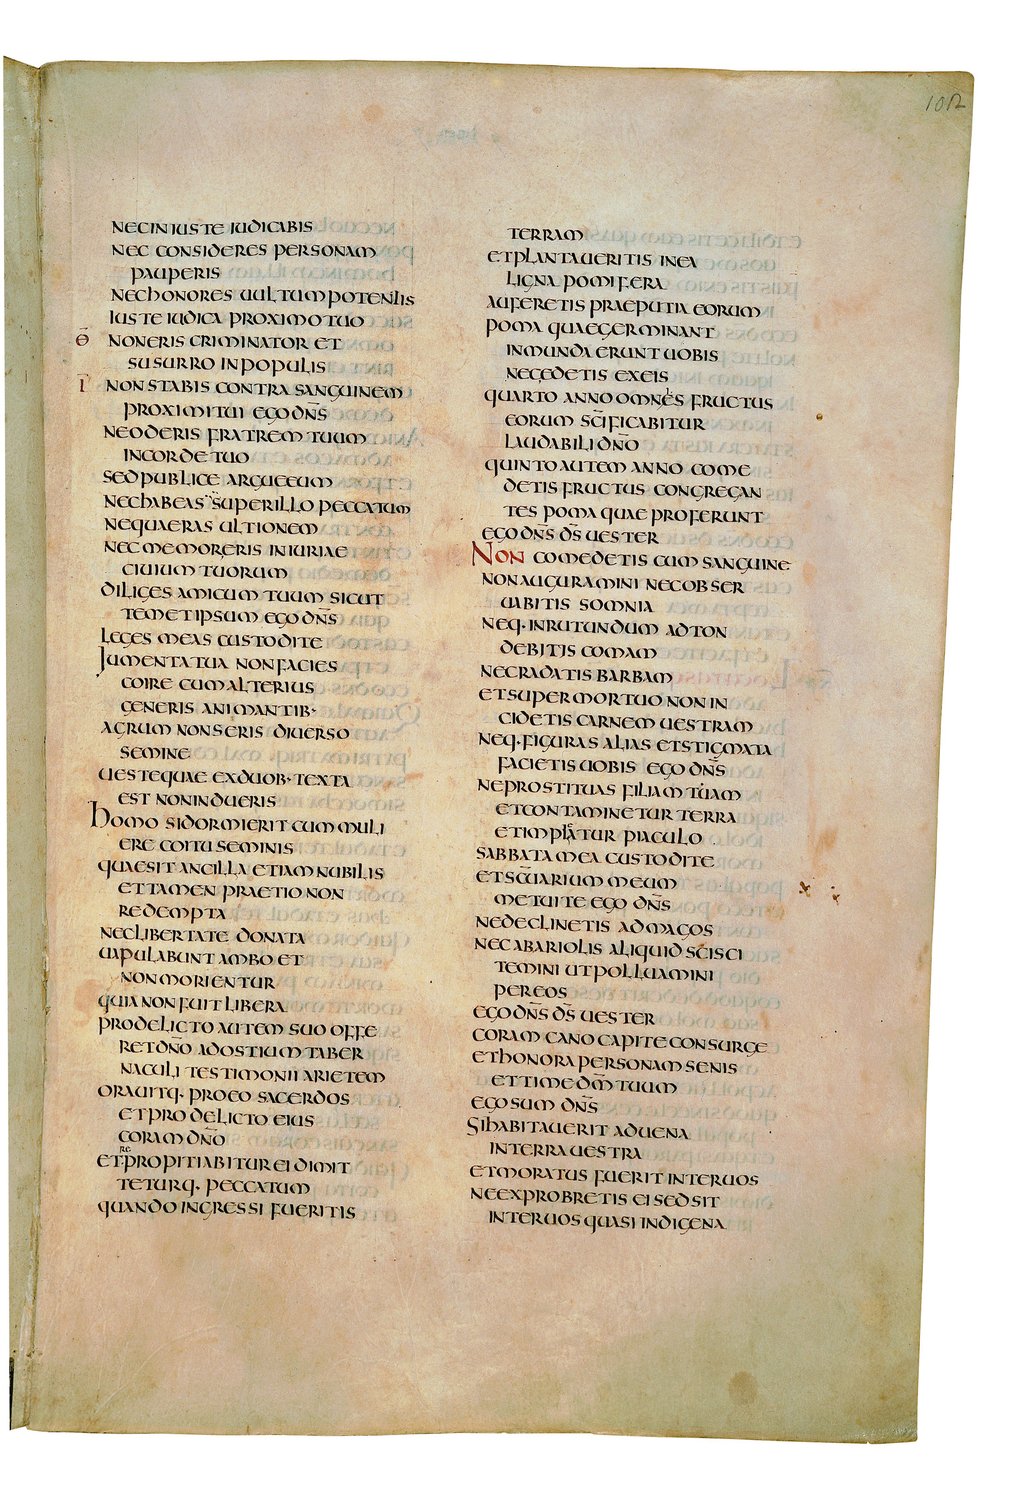 102
NEC INIUSTE IUDICABIS
NEC CONSIDERES PERSONAM
PAUPERIS
NEC HONORES UULTUM POTENTIS
IUSTE IUDICA PROXIMO TUO
Θ NON ERIS CRIMINATOR ET
SUSURRO IN POPULIS
Ī NON STABIS CONTRA SANGUINEM
PROXIMI TUI EGO DN̄S
NE ODERIS FRATREM TUUM
IN CORDE TUO
SED PUBLICE ARGUE EUM
NEC HABEAS SUPER ILLO PECCATUM
NE QUAERAS ULTIONEM
NEC MEMOR ERIS INIURIAE
CIUIUM TUORUM
DILIGES AMICUM TUUM SICUT
TEMET IPSUM EGO DN̄S
LEGES MEAS CUSTODITE
IUMENTA TUA NON FACIES
COIRE CUM ALTERIUS
GENERIS ANIMANTIB·
AGRUM NON SERIS DIUERSO
SEMINE
UESTE QUAE EX DUOB· TEXTA
EST NON INDUERIS
HOMO SI DORMIERIT CUM MULI
ERE COITU SEMINIS
QUAE SIT ANCILLA ETIAM NUBILIS
ET TAMEN PRAETIO NON
REDEMPTA
NEC LIBERTATE DONATA
UAPULABUNT AMBO ET
NON MORIENTUR
QUIA NON FUIT LIBERA
PRO DELICTO AUTEM SUO OFFE
RET DN̄O AD OSTIUM TABER
NACULI TESTIMONII ARIETEM
ORAUITQ· PRO EO SACERDOS
ET PRO DELICTO EIUS
CORAM DN̄O
ET REPROPITIABITUR EI DIMIT
TETURQ· PECCATUM
QUANDO INGRESSI FUERITIS
TERRAM
ET PLANTAUERITIS IN EA
LIGNA POMIFERA
AUFERETIS PRAEPUTIA EORUM
POMA QUAE GERMINANT
INMUNDA ERUNT UOBIS
NEC EDETIS EX EIS
QUARTO ANNO OMNES FRUCTUS
EORUM SC̄IFICABITUR
LAUDABILI DN̄O
QUINTO AUTEM ANNO COME
DETIS FRUCTUS CONGREGAN
TES POMA QUAE PROFERUNT
EGO DN̄S D̄S UESTER
NON COMEDETIS CUM SANGUINE
NON AUGURAMINI NEC OBSER
UABITIS SOMNIA
NEQ· IN RUTUNDUM ADTON
DEBITIS COMAM
NEC RADATIS BARBAM
ET SUPER MORTUO NON IN
CIDETIS CARNEM UESTRAM
NEQ· FIGURAS ALIAS ET STIGMATA
FACIETIS UOBIS EGO DN̄S
NE PROSTITUAS FILIAM TUAM
ET CONTAMINETUR TERRA
ET IMPLEATUR PIACULO
SABBATA MEA CUSTODITE
ET SC̄UARIUM MEUM
METUITE EGO DN̄S
NE DECLINETIS AD MAGOS
NEC AB ARIOLIS ALIQUID SCISCI
TEMINI UT POLLUAMINI
PER EOS
EGO DN̄S D̄S UESTER
CORAM CANO CAPITE CONSURGE
ET HONORA PERSONAM SENIS
ET TIME D̄M TUUM
EGO SUM DN̄S
SI HABITAUERIT ADUENA
IN TERRA UESTRA
ET MORATUS FUERIT INTER UOS
NE EXPROBRETIS EI SED SIT
INTER UOS QUASI INDIGENA